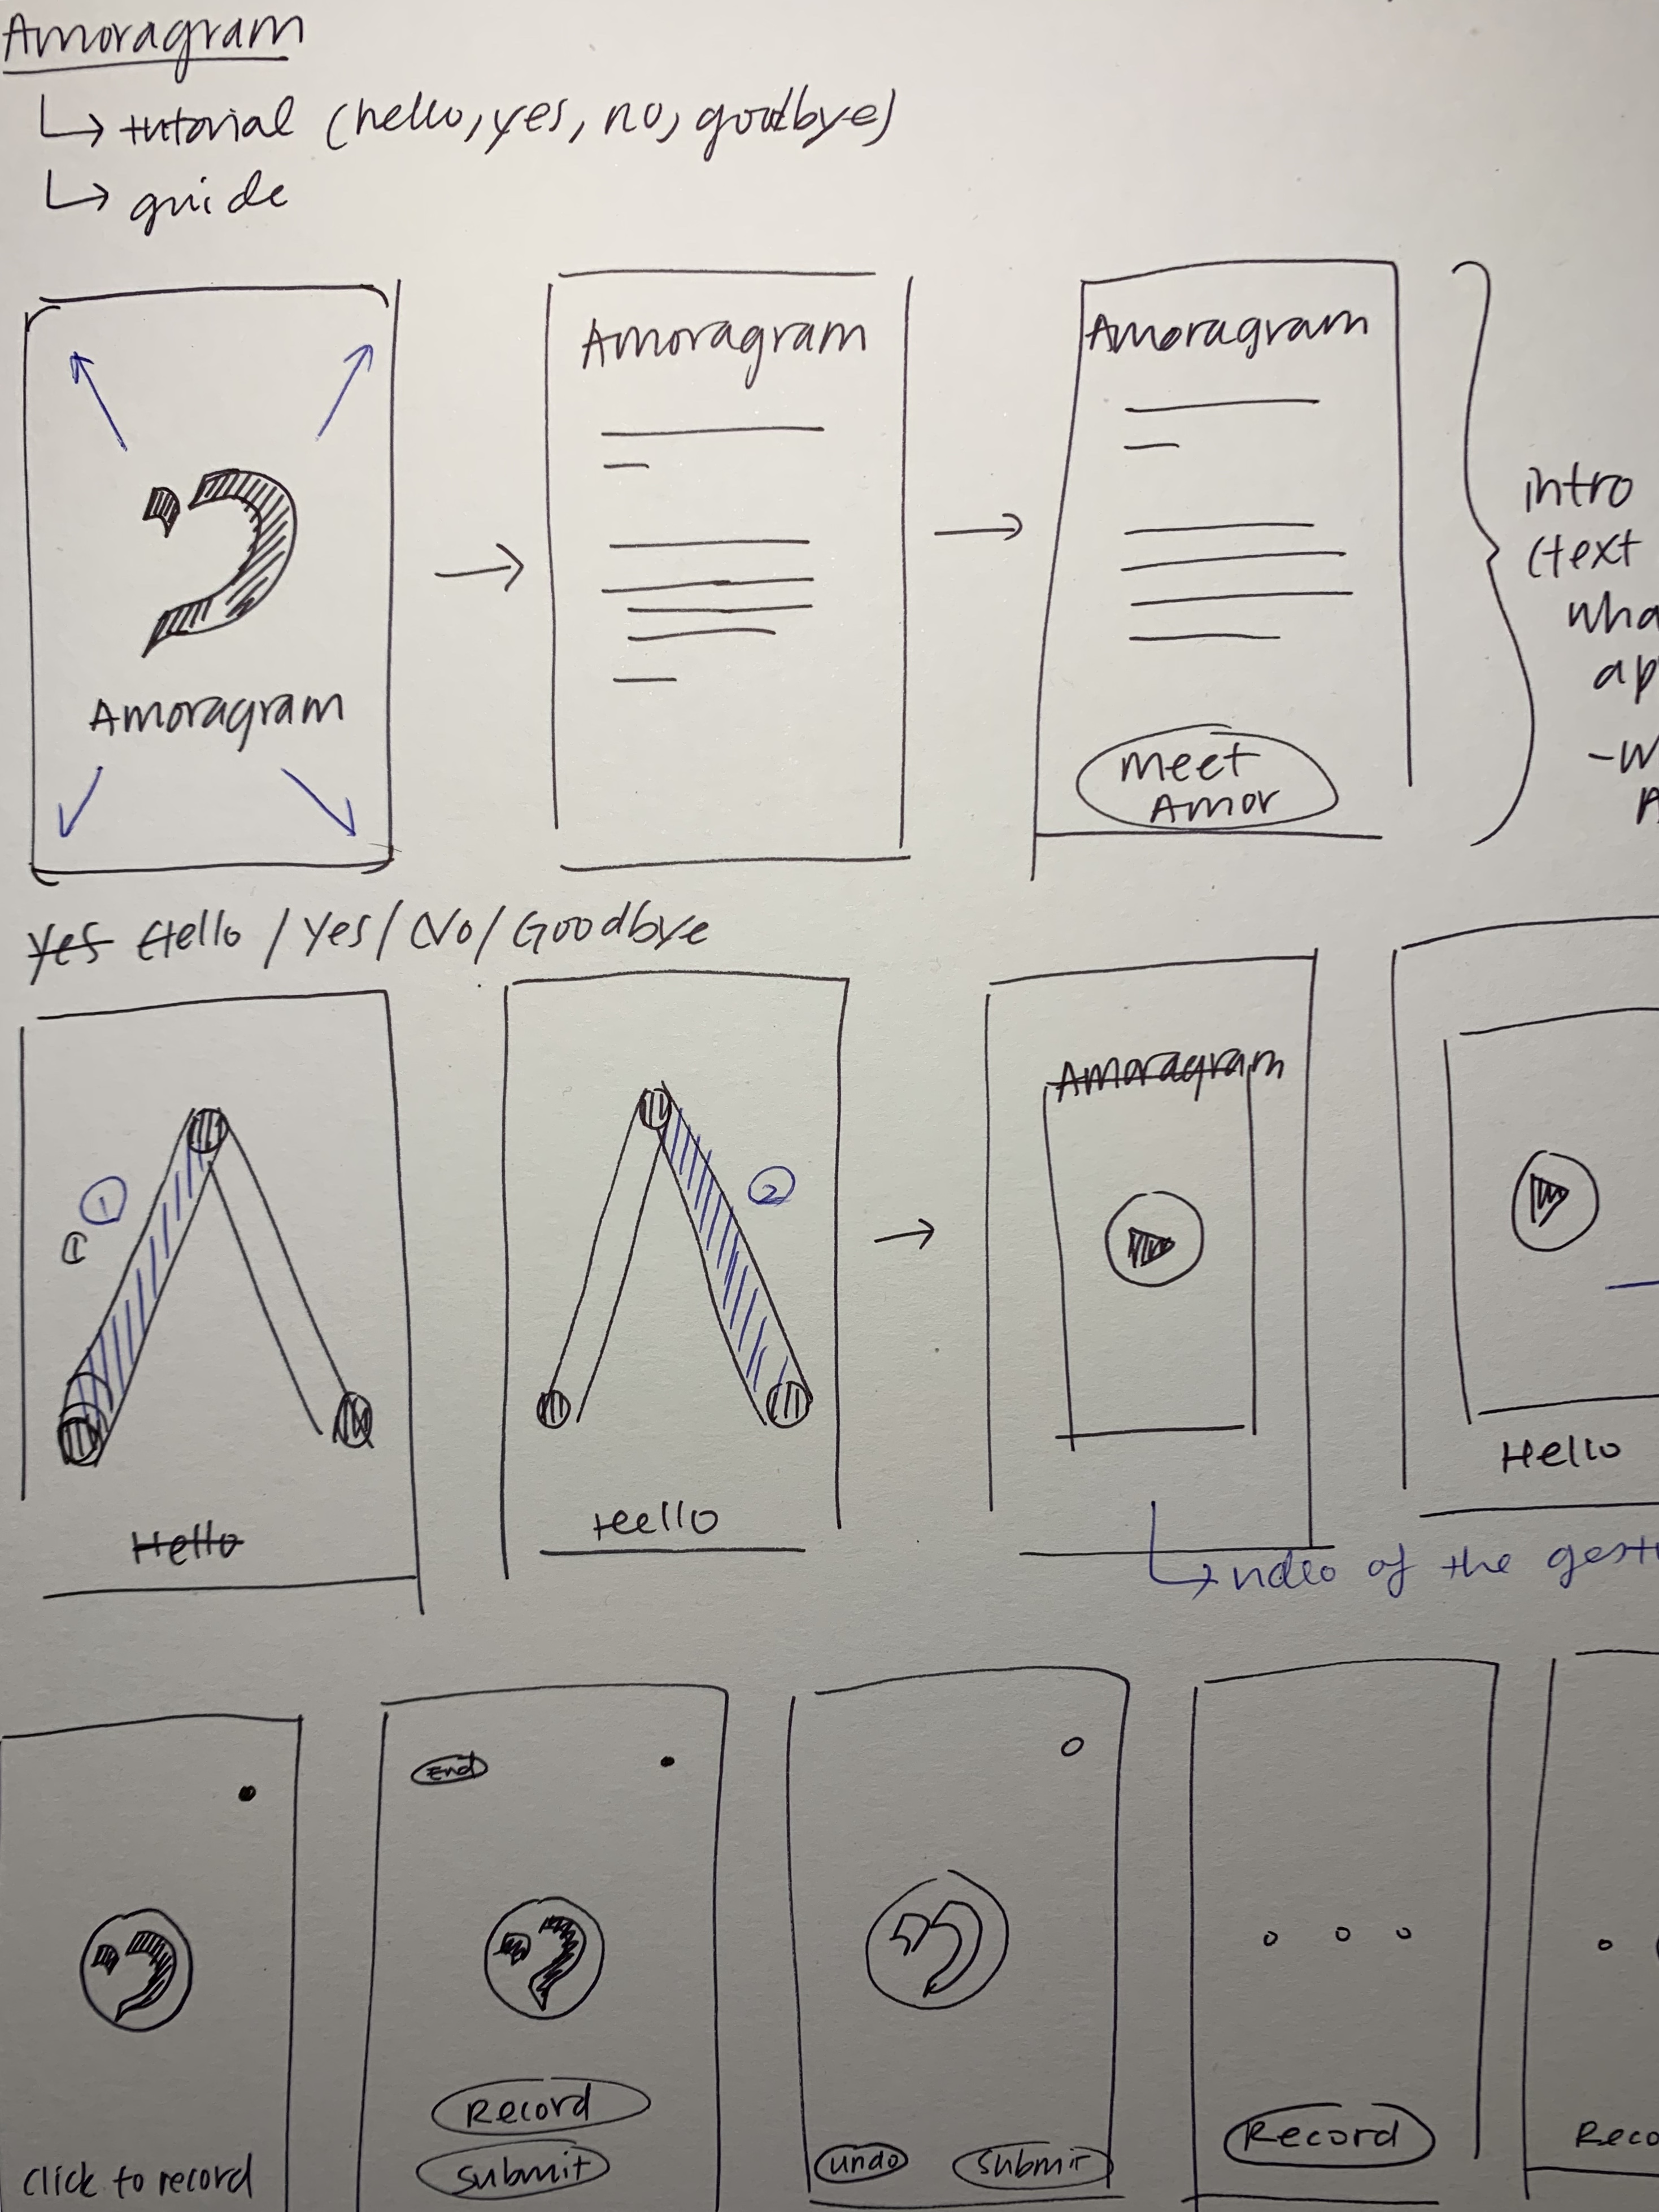 Amoragram
↳ tutorial (hello, yes, no, goodbye)
↳ guide
Amoragram
Amoragram
Amoragram
meet
Amor
intro
(text
yes Hello / Yes / No / Goodbye
1
Hello
2
Hello
Amoragram
Hello
↳ video of the
click to record
End
Record
Submit
undo
Submit
Record